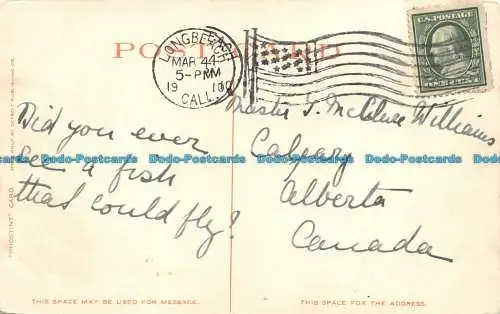 POST CARD
LONG BEACH
MAR 4
5-PM
1910
CAL.
U.S. POSTAGE
ONE CENT
Did you ever
see a fish
that could fly?
Master T. McClure Williams
Calgary
Alberta
Canada
Dodo-Postcards Dodo-Postcards Dodo-Postcards Dodo-Postcards Dodo-Postcards
"PHOSTINT" CARD
THIS SPACE MAY BE USED FOR MESSAGE.
THIS SPACE IS FOR THE ADDRESS.